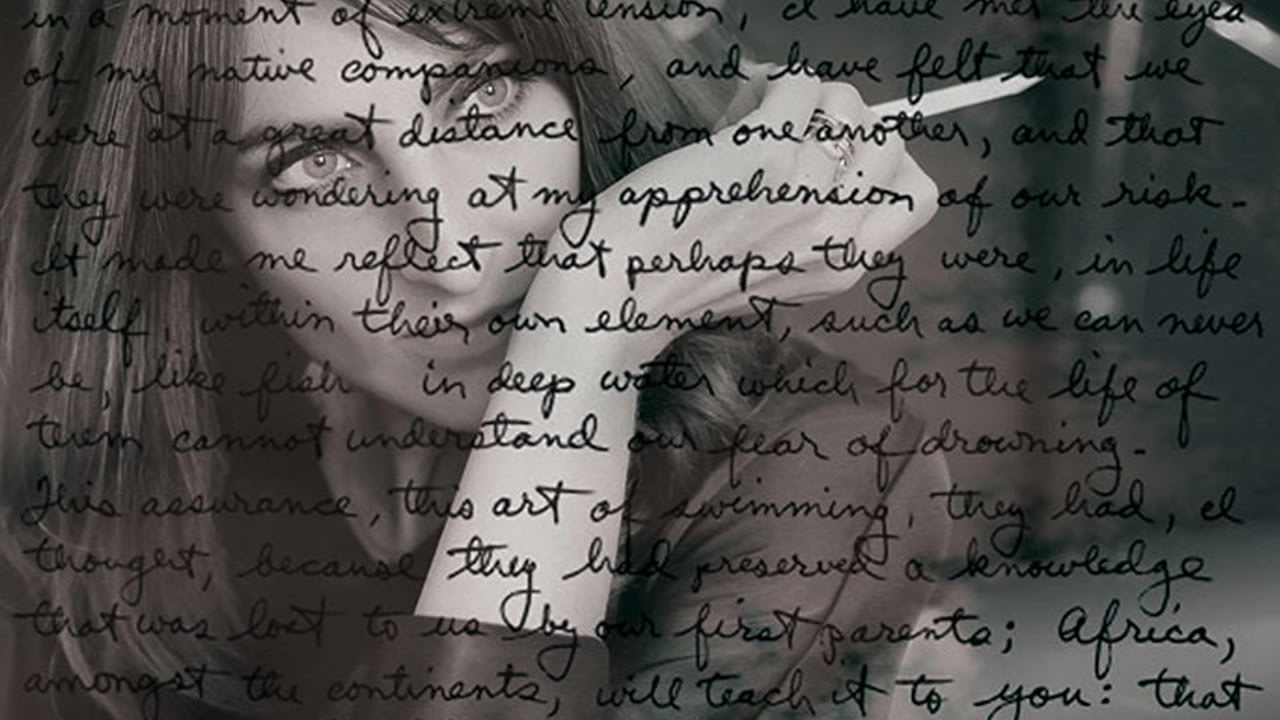 in a moment of extreme tension, I have met the eyes
of my native companions, and have felt that we
were at a great distance from one another, and that
they were wondering at my apprehension of our risk-
It made me reflect that perhaps they were, in life
itself, within their own element, such as we can never
be, like fish in deep water which for the life of
them cannot understand our fear of drowning-
This assurance, this art of swimming, they had, I
thought, because they had preserved a knowledge
that was lost to us by our first parents; Africa,
amongst the continents, will teach it to you: that